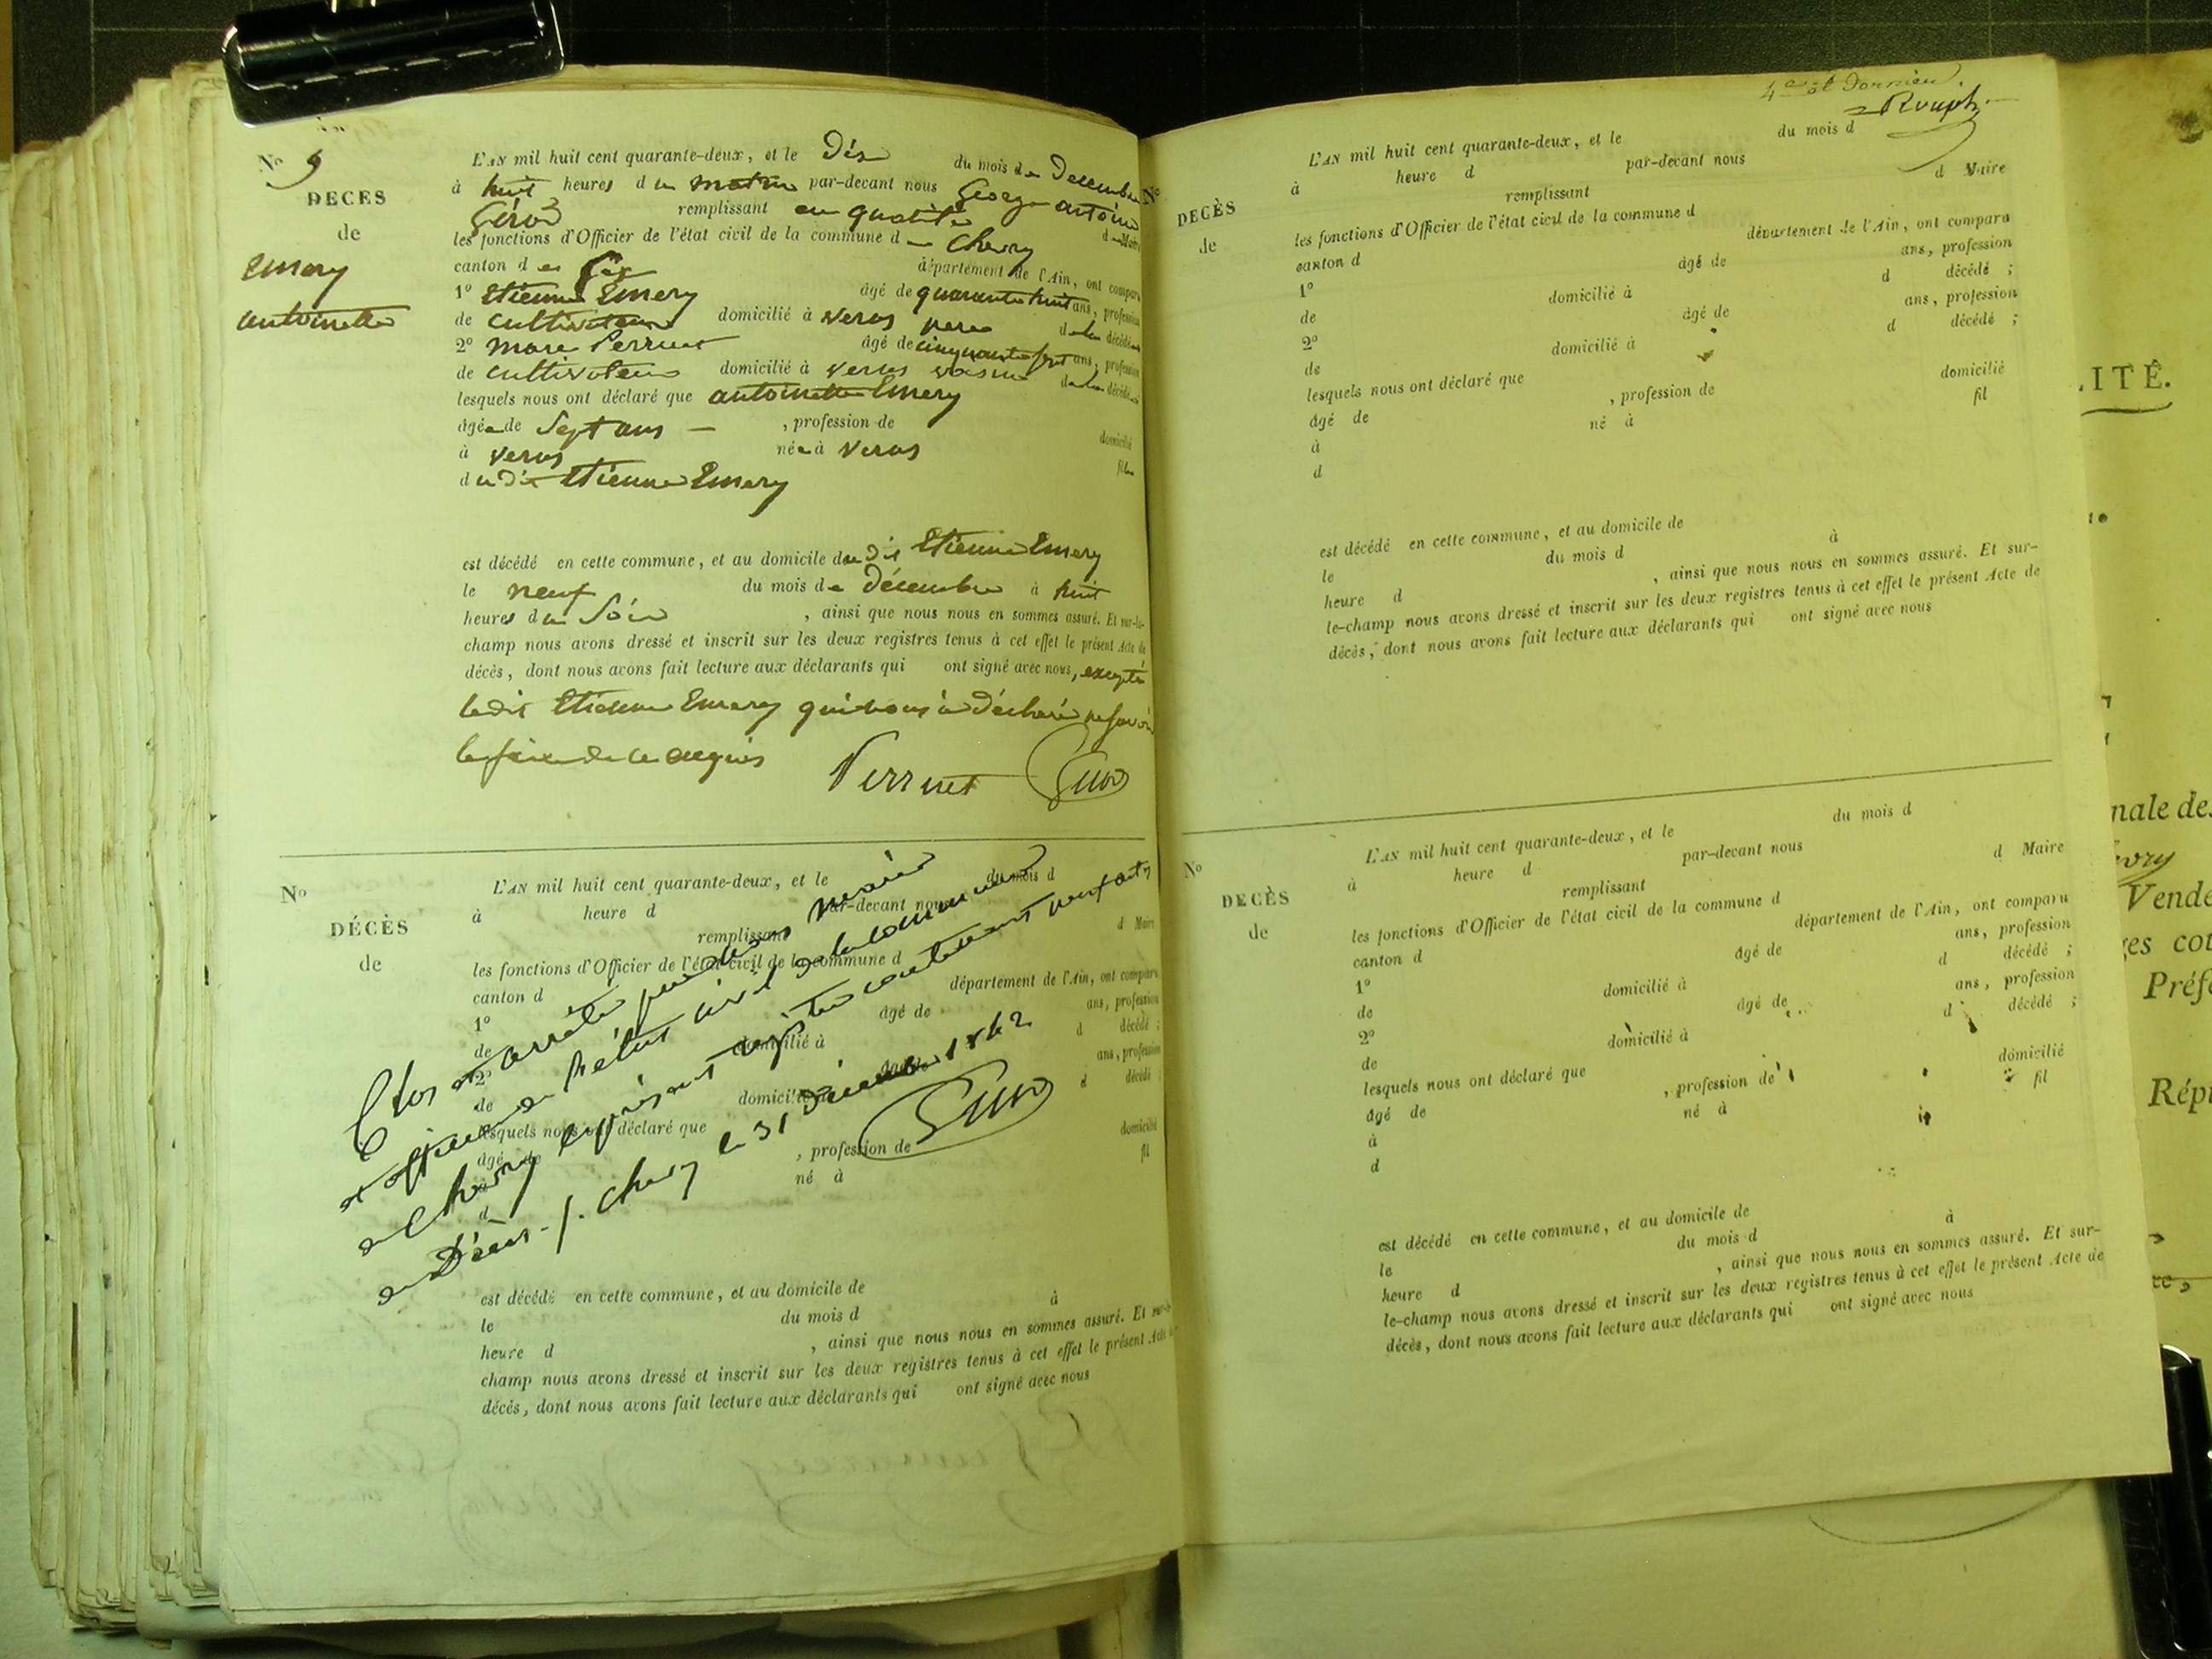 No 9
DECES
de
Emery
antoinette
L'AN mil huit cent quarante-deux, et le Dix du mois de Decembre
à huit heures du matin par-devant nous George antoine
Girod remplissant en qualité de Maire
les fonctions d'Officier de l'état civil de la commune de Chevry
canton de Gex département de l'Ain, ont comparu
1º Etienne Emery âgé de quarante huit ans, profession
de cultivateur domicilié à veras pere de la décédée
2º marc Perruet âgé de cinquante sept ans, profession
de cultivateur domicilié à veras voisin de la décédée
lesquels nous ont déclaré que antoinette Emery
âgée de Sept ans — , profession de domicilié
à veras née à veras fille
du dit Etienne Emery
est décédé en cette commune, et au domicile du dit Etienne Emery
le neuf du mois de décembre à huit
heures du Soir , ainsi que nous nous en sommes assuré. Et sur-le-
champ nous avons dressé et inscrit sur les deux registres tenus à cet effet le présent Acte de
décès, dont nous avons fait lecture aux déclarants qui ont signé avec nous, excepté
ledit Etienne Emery qui nous à déclaré ne savoir
le faire de ce requis
Perruet Girod
No
DÉCÈS
de
L'AN mil huit cent quarante-deux, et le du mois d
à heure d par-devant nous
remplissant d Maire
les fonctions d'Officier de l'état civil de la commune d
canton d département de l'Ain, ont comparu
1º âgé de ans, profession
de domicilié à d décédé ;
2º âgé de ans, profession
de domicilié à d décédé ;
lesquels nous ont déclaré que
âgé de , profession de domicilié
à né à fil
d
Clos et arrêté par nous maire
et officier de l'état civil de la commune
de Chevry le présent registre contenant neuf actes
de Décès. /. Chevry le 31 décembre 1842
Girod
est décédé en cette commune, et au domicile de
le du mois d à
heure d , ainsi que nous nous en sommes assuré. Et sur-le-
champ nous avons dressé et inscrit sur les deux registres tenus à cet effet le présent Acte de
décès, dont nous avons fait lecture aux déclarants qui ont signé avec nous
4e et Dernier.
Rouph
No
DECÈS
de
L'AN mil huit cent quarante-deux, et le du mois d
à heure d par-devant nous
remplissant d Maire
les fonctions d'Officier de l'état civil de la commune d
canton d département de l'Ain, ont comparu
1º âgé de ans, profession
de domicilié à d décédé ;
2º âgé de ans, profession
de domicilié à d décédé ;
lesquels nous ont déclaré que
âgé de , profession de domicilié
à né à fil
d
est décédé en cette commune, et au domicile de
le du mois d à
heure d , ainsi que nous nous en sommes assuré. Et sur-
le-champ nous avons dressé et inscrit sur les deux registres tenus à cet effet le présent Acte de
décès, dont nous avons fait lecture aux déclarants qui ont signé avec nous
No
DECÈS
de
L'AN mil huit cent quarante-deux, et le du mois d
à heure d par-devant nous
remplissant d Maire
les fonctions d'Officier de l'état civil de la commune d
canton d département de l'Ain, ont comparu
1º âgé de ans, profession
de domicilié à d décédé ;
2º âgé de ans, profession
de domicilié à d décédé ;
lesquels nous ont déclaré que
âgé de , profession de domicilié
à né à fil
d
est décédé en cette commune, et au domicile de
le du mois d à
heure d , ainsi que nous nous en sommes assuré. Et sur-
le-champ nous avons dressé et inscrit sur les deux registres tenus à cet effet le présent Acte de
décès, dont nous avons fait lecture aux déclarants qui ont signé avec nous
ITÉ.
nale des
evry
Vende
ges co
Préfe
Répu